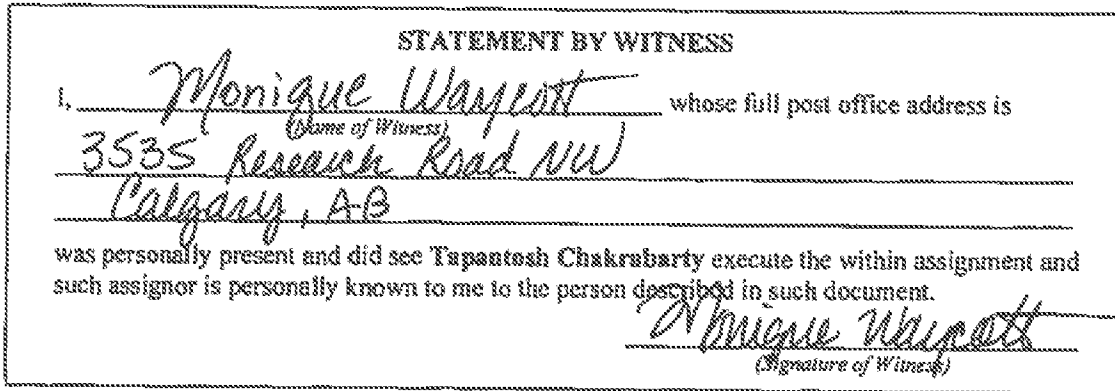 STATEMENT BY WITNESS
I, Monique Waycott whose full post office address is
(Name of Witness)
3535 Research Road NW
Calgary, AB
was personally present and did see Tapantosh Chakrabarty execute the within assignment and
such assignor is personally known to me to the person described in such document.
Monique Waycott
(Signature of Witness)